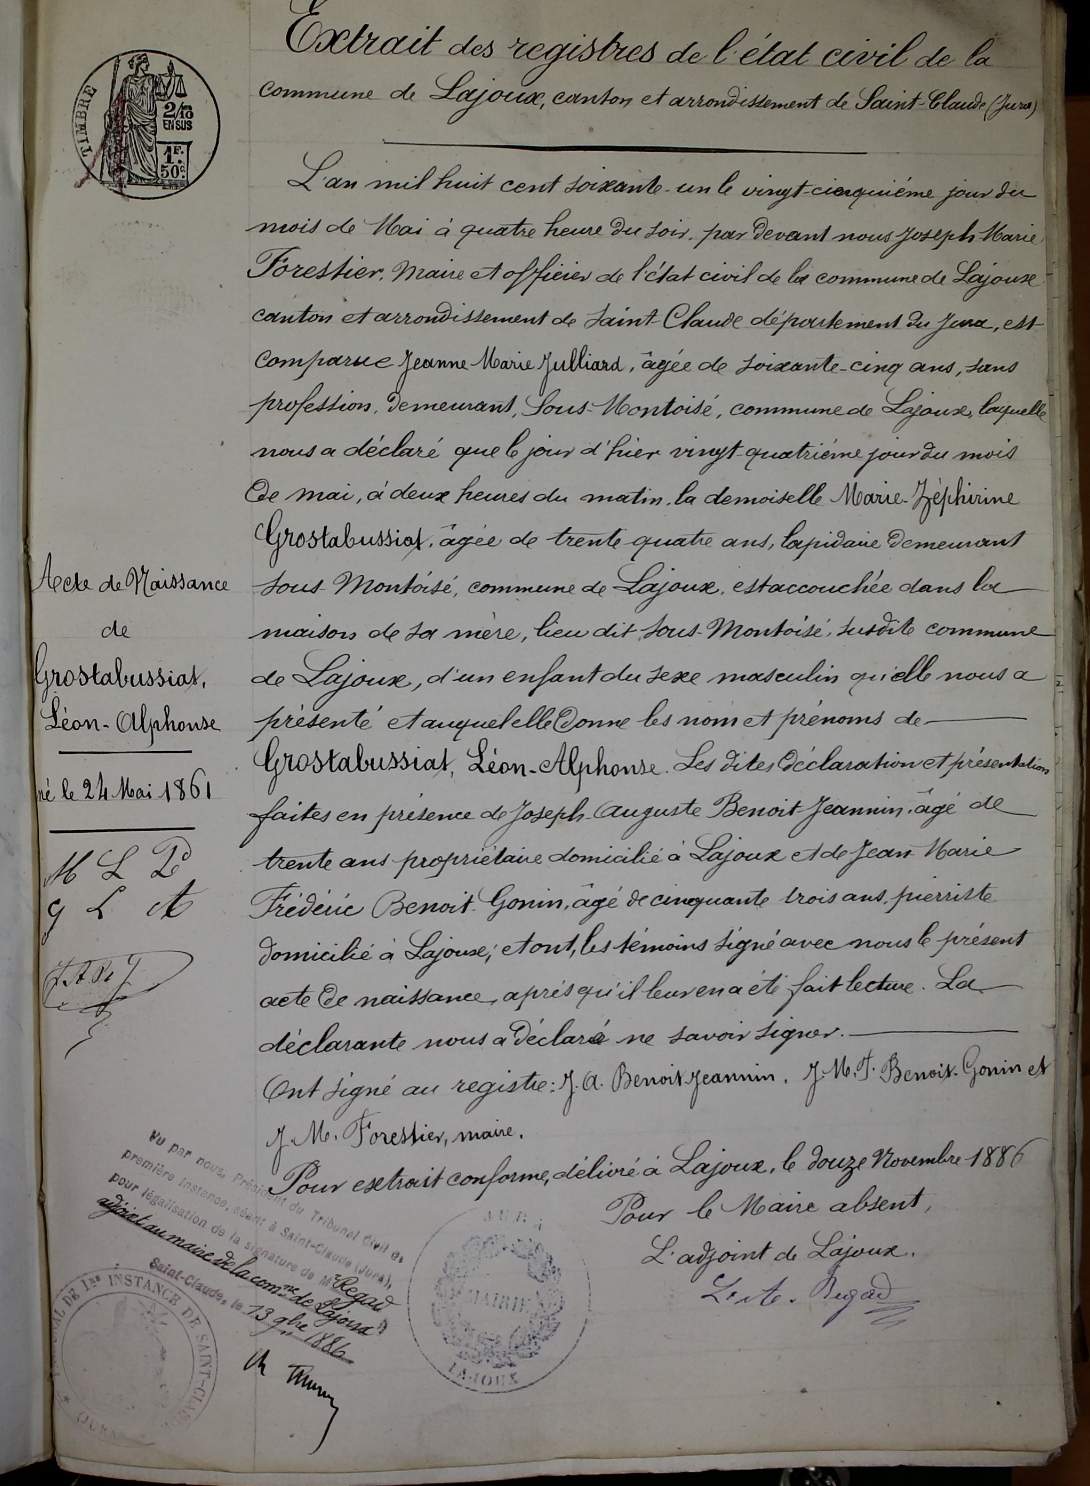 Extrait des registres de l'état civil de la
commune de Lajoux, canton et arrondissement de Saint-Claude (Jura)
TIMBRE
2/10
EN SUS
1F.
50c.
L'an mil huit cent soixante-un le vingt-cinquième jour du
mois de Mai à quatre heure du soir, par devant nous Joseph-Marie
Forestier, Maire et officier de l'état civil de la commune de Lajoux
canton et arrondissement de Saint-Claude département du Jura, est
comparue Jeanne-Marie Julliard, âgée de soixante-cinq ans, sans
profession, demeurant, Sous-Montoisé, commune de Lajoux, laquelle
nous a déclaré que le jour d'hier vingt-quatrième jour du mois
de mai, à deux heures du matin, la demoiselle Marie-Zéphirine
Grostabussiat, âgée de trente quatre ans, lapidaire demeurant
sous-Montoisé, commune de Lajoux, est accouchée dans la
maison de sa mère, lieu dit sous-Montoisé, susdite commune
de Lajoux, d'un enfant du sexe masculin qu'elle nous a
présenté et auquel elle donne les nom et prénoms de
Grostabussiat, Léon-Alphonse. Les dites déclaration et présentation
faites en présence de Joseph-Auguste Benoit Jeannin, âgé de
trente ans propriétaire domicilié à Lajoux et de Jean-Marie
Frédéric Benoit-Gonin, âgé de cinquante trois ans, pierriste
domicilié à Lajoux; et ont, les témoins signé avec nous le présent
acte de naissance, après qu'il leur en a été fait lecture. La
déclarante nous a déclaré ne savoir signer.
Ont signé au registre: J. A. Benoit Jeannin, J. M. F. Benoit-Gonin et
J. M. Forestier, maire.
Pour extrait conforme, délivré à Lajoux, le douze Novembre 1886
Pour le Maire absent,
L'adjoint de Lajoux.
Regad
Acte de Naissance
de
Grostabussiat,
Léon-Alphonse
né le 24 Mai 1861
M L
G L A
Vu par nous, Président du Tribunal Civil de
première Instance, séant à Saint-Claude (Jura),
pour légalisation de la signature de Mr Regad
adjoint au maire de la comne de Lajoux
Saint-Claude, le 13 9bre 1886
JURA
MAIRIE
LAJOUX
DE 1re INSTANCE DE SAINT-CLAUDE